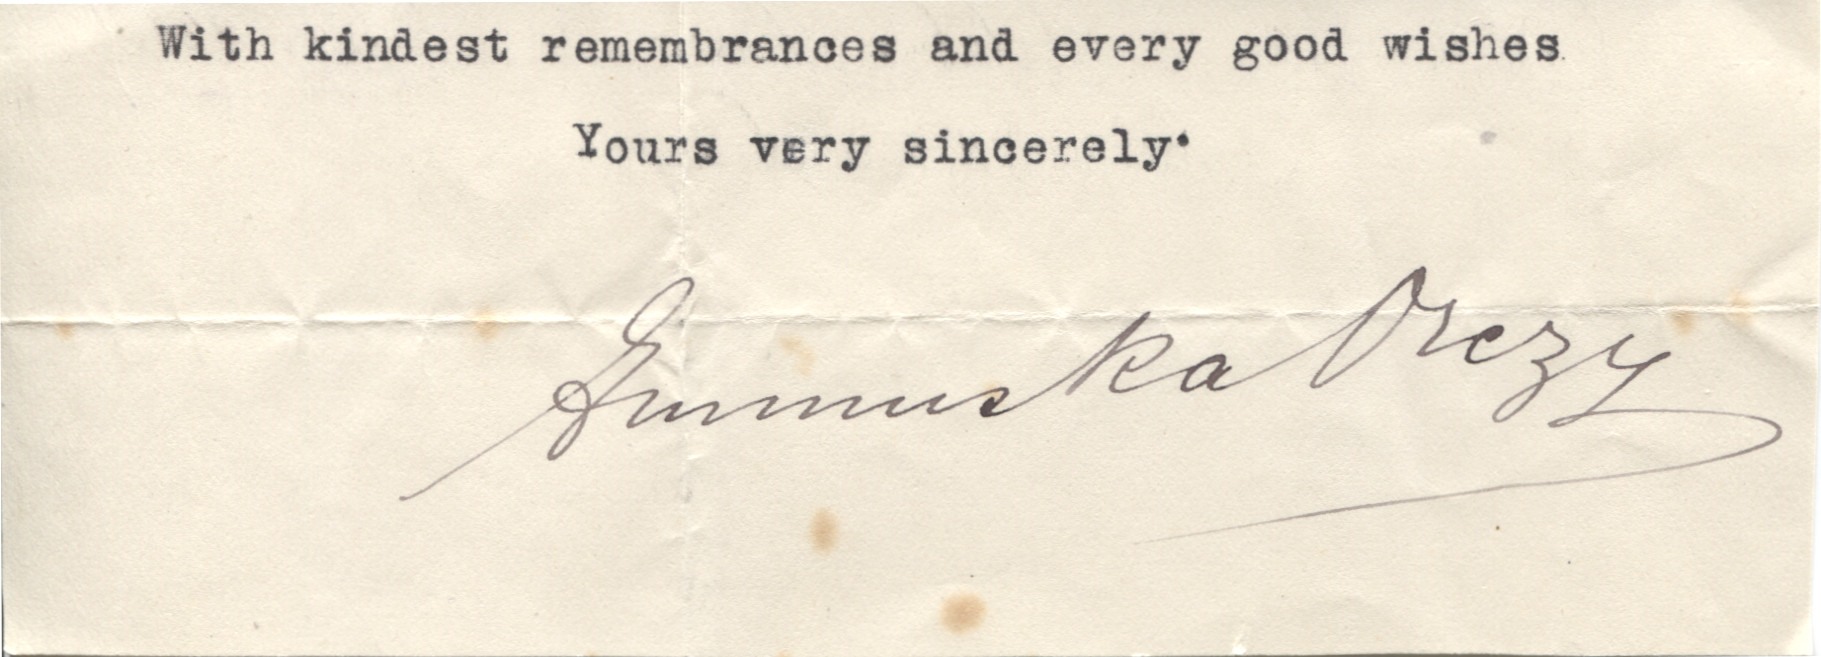 With kindest remembrances and every good wishes.
Yours very sincerely.
Emmuska Orczy